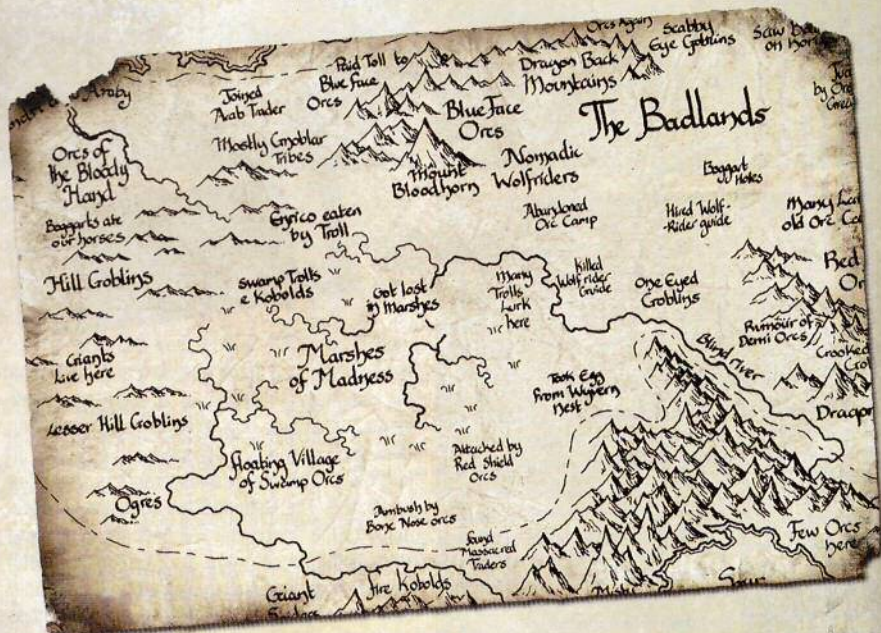 Orcs Again
Scabby
Eye Goblins
Saw
on
Araby
Joined
Arab Trader
Paid Toll to
Blue Face
Orcs
Dragon Back
Mountains
Blue Face
Orcs
The Badlands
by
Orcs of
the Bloody
Hand
Mostly Gnoblar
Tribes
Mount
Bloodhorn
Nomadic
Wolfriders
Boggart
Holes
Boggarts ate
our horses
Enrico eaten
by Troll
Abandoned
Orc Camp
Hired Wolf-
-Rider guide
Many
old Orc
Hill Goblins
Swamp Trolls
& Kobolds
Got lost
in Marshes
Many
Trolls
Lurk
here
Killed
Wolfrider
Guide
One Eyed
Goblins
Red
Rumour of
Demi Orcs
Crooked
Giants
Live here
Marshes
of Madness
Took Egg
From Wyvern
Nest
Blind river
Lesser Hill Goblins
Floating Village
of Swamp Orcs
Attacked by
Red Shield
Orcs
Ogres
Ambush by
Bone Nose orcs
Found
Massacred
Traders
Few Orcs
here
Giant
Fire Kobolds